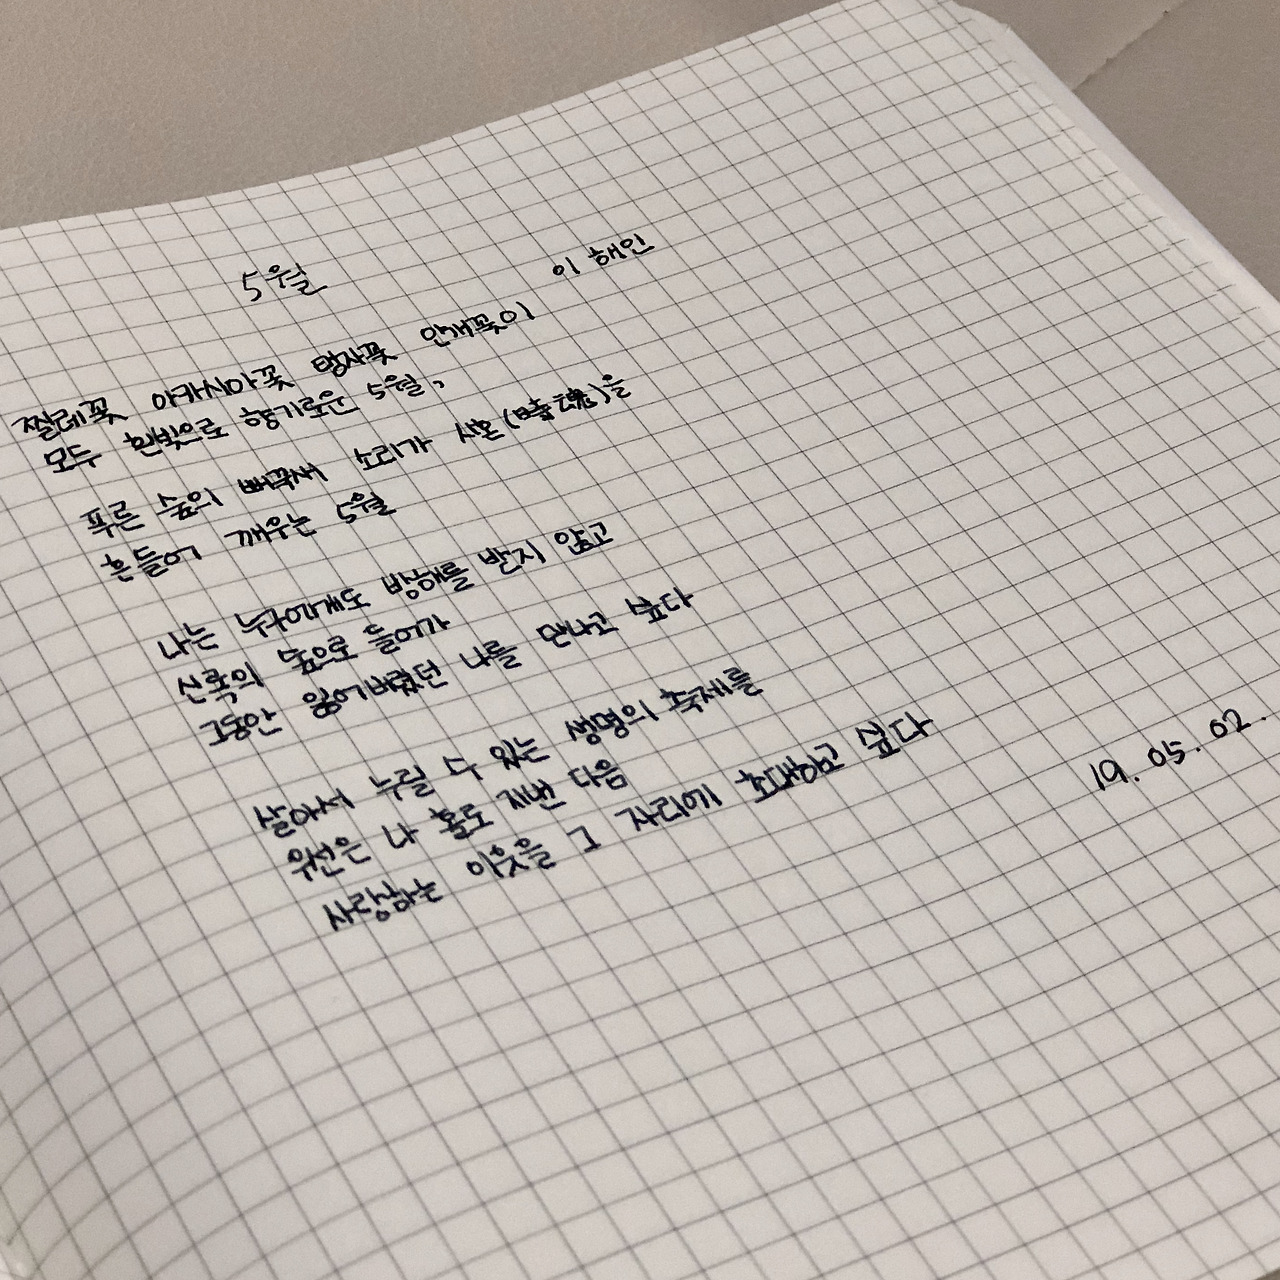 5월
이 해인
찔레꽃 아카시아꽃 탱자꽃 안개꽃이
모두 흰빛으로 향기로운 5월,
푸른 숲의 뻐꾹새 소리가 시혼(時魂)을
흔들어 깨우는 5월
나는 누구에게도 방해를 받지 않고
신록의 숲으로 들어가
그동안 잃어버렸던 나를 만나고 싶다
살아서 누릴 수 있는 생명의 축제를
우선은 나 홀로 지낸 다음
사랑하는 이웃을 그 자리에 초대하고 싶다
19.05.02.